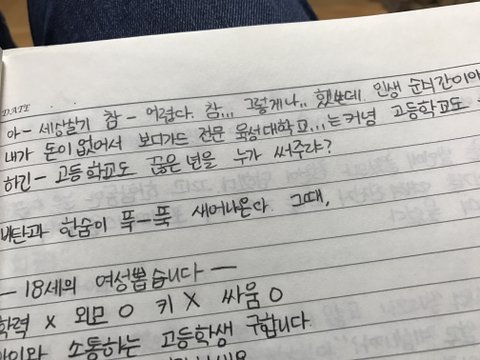 DATE . .
아– 세상살기 참– 어렵다. 참... 그렇게나.. 했는데. 인생 순식간이야
내가 돈이 없어서 보디가드 전문 육성대학교...는커녕 고등학교도
하긴– 고등학교도 끊은 년을 누가 써주랴?
비탄과 한숨이 푹–푹 새어나온다. 그때,
— 18세의 여성뽑습니다 —
학력 X 외모 O 키 X 싸움 O
아이와 소통하는 고등학생 구합니다.